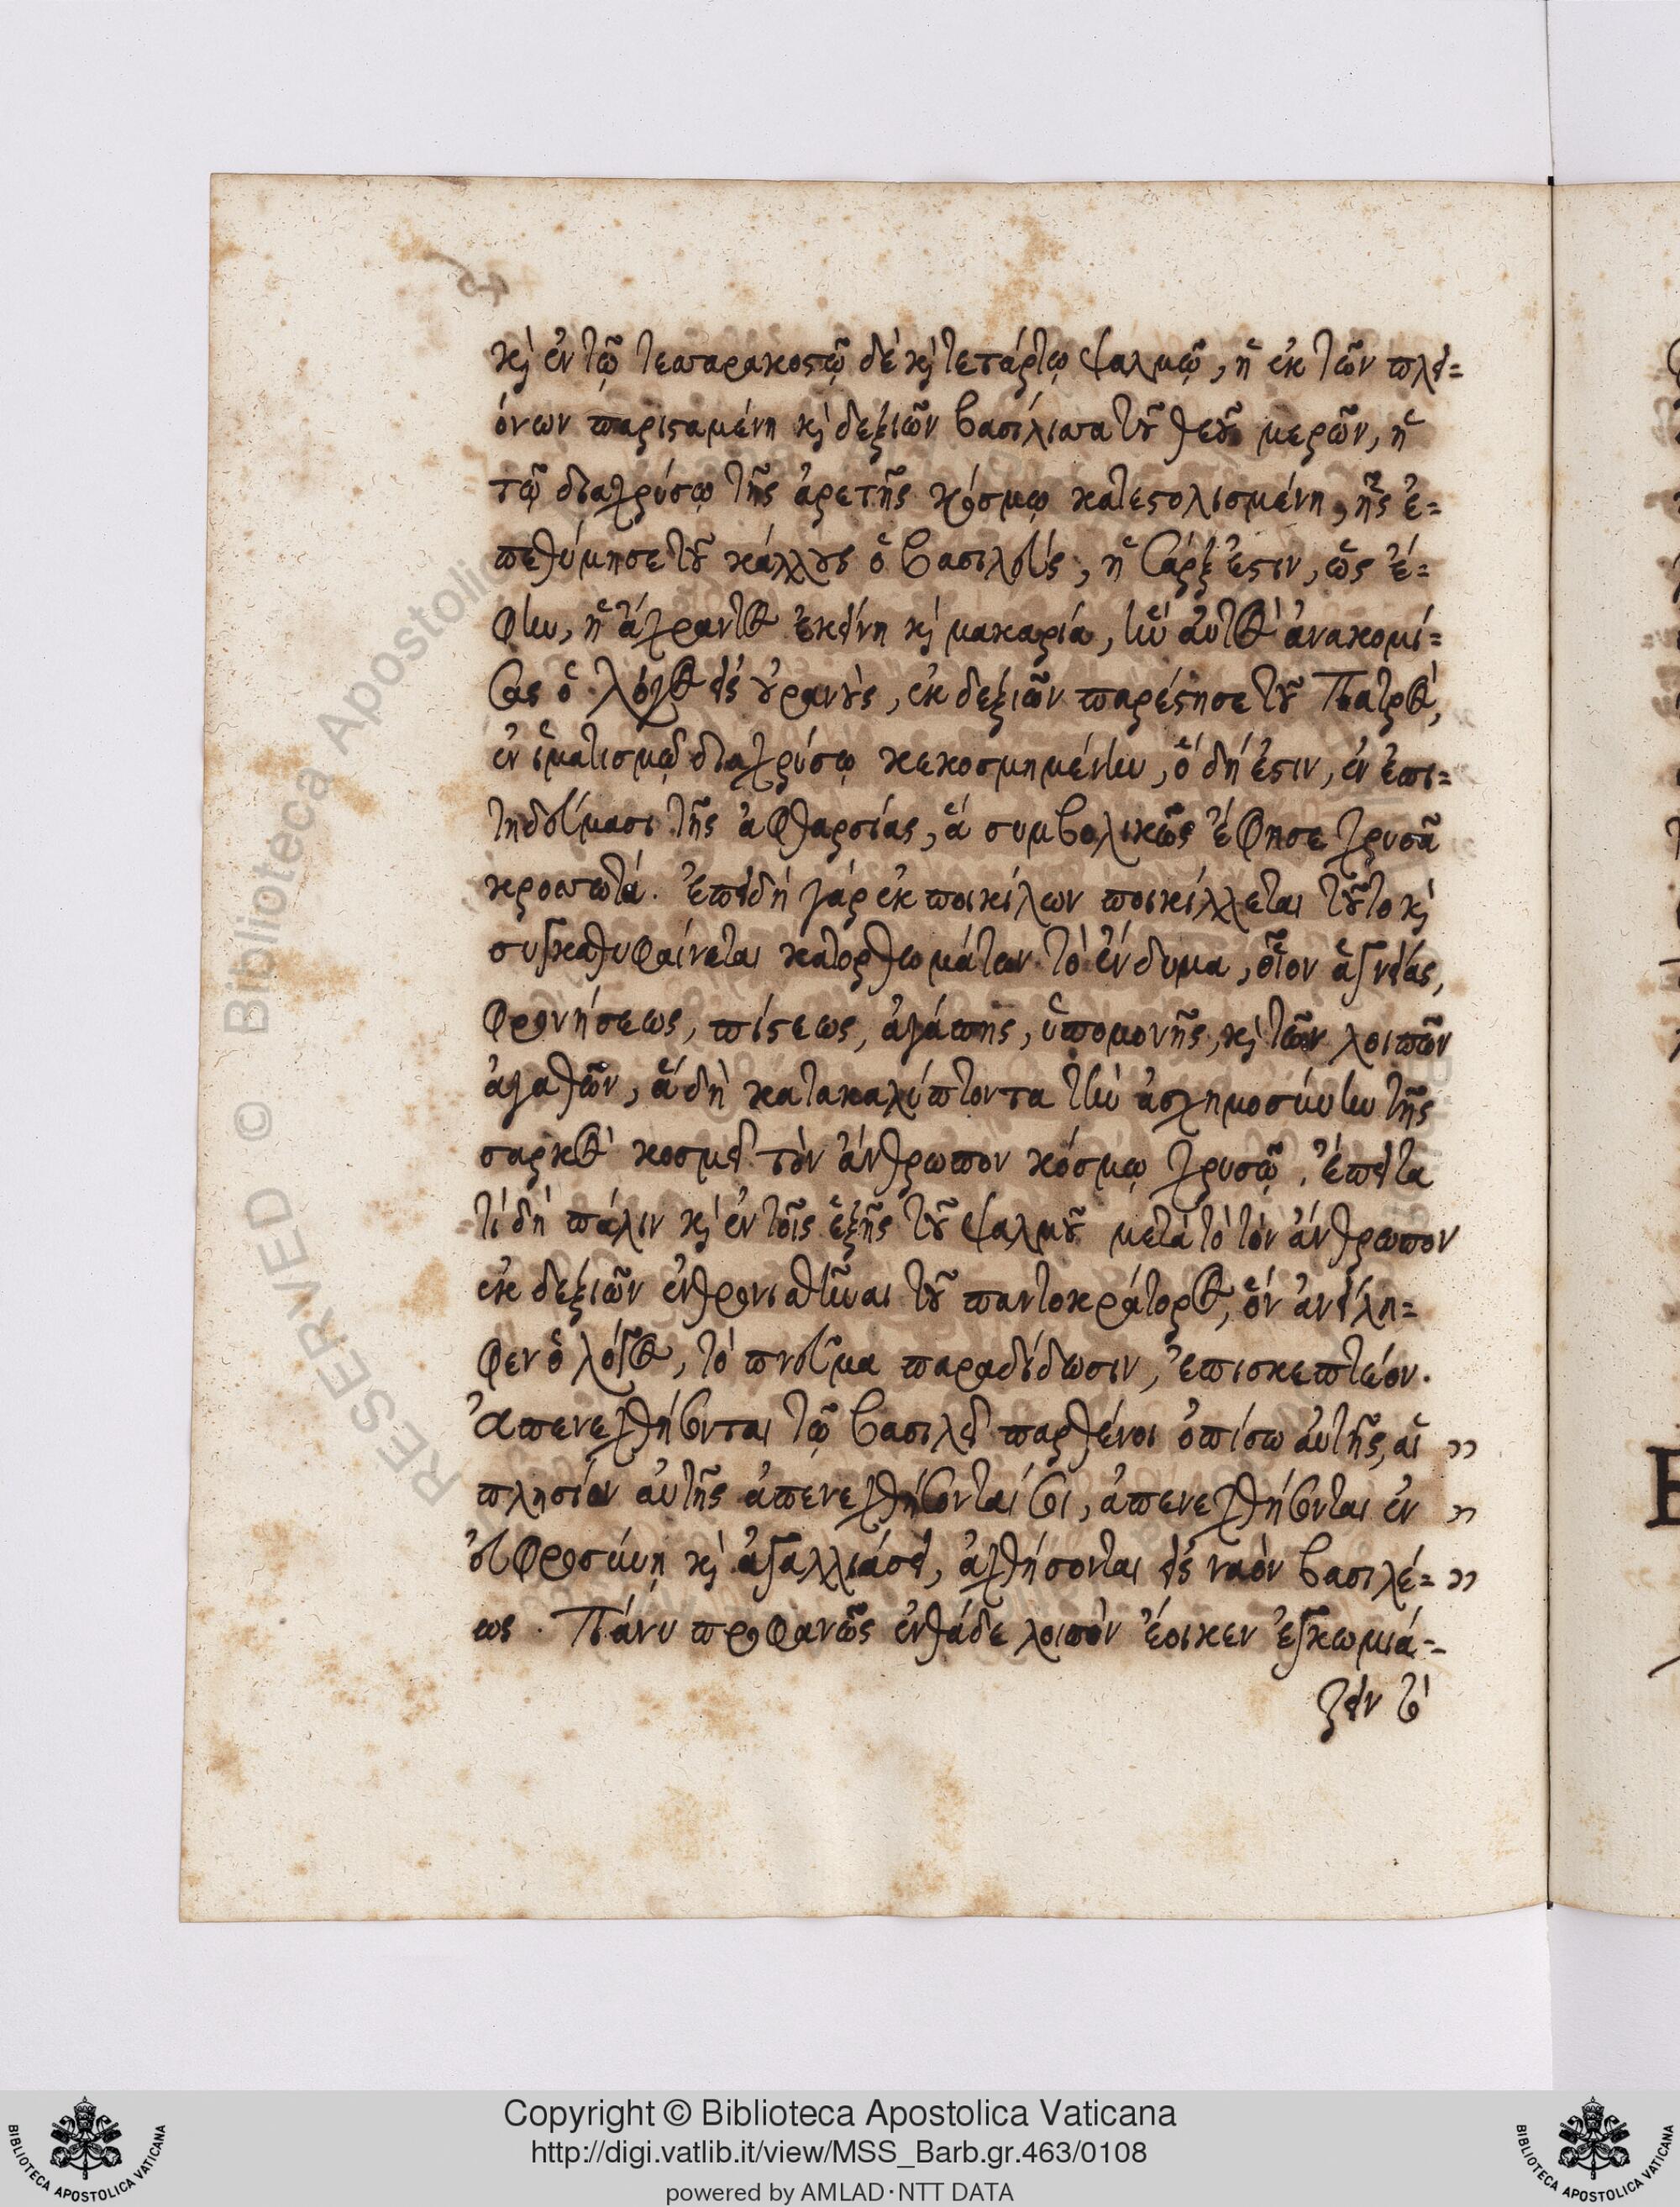 καὶ ἐν τῷ τεσσαρακοστῷ δὲ καὶ τετάρτῳ ψαλμῷ, ἡ ἐκ τῶν πλει=
όνων παρισταμένη καὶ δεξιῶν βασίλισσα τοῦ θεοῦ μερῶν, ἡ
τῷ διαχρύσῳ τῆς ἀρετῆς κόσμῳ κατεστολισμένη, ἧς ἐ=
πεθύμησε τοῦ κάλλους ὁ βασιλεύς, ἡ σάρξ ἐστιν, ὡς ἔ=
φην, ἡ ἄχραντος ἐκείνη καὶ μακαρία, ἣν αὐτὸς ἀνακομί=
σας ὁ λόγος εἰς οὐρανοὺς, ἐκ δεξιῶν παρέστησε τοῦ Πατρὸς,
ἐν ἱματισμῷ διαχρύσῳ κεκοσμημένην, ὅ δή ἐστιν, ἐν ἐπι=
τηδεύμασι τῆς ἀφθαρσίας, ἃ συμβολικῶς ἔφησε χρυσᾶ
κροσσωτά. Ἐπειδὴ γὰρ ἐκ ποικίλων ποικίλλεται τοῦτο καὶ
συγκαθυφαίνεται κατορθωμάτων τὸ ἔνδυμα, οἷον ἁγνείας,
φρονήσεως, πίστεως, ἀγάπης, ὑπομονῆς, καὶ τῶν λοιπῶν
ἀγαθῶν, ἃ δὴ κατακαλύπτοντα τὴν ἀσχημοσύνην τῆς
σαρκὸς κοσμεῖ τὸν ἄνθρωπον κόσμῳ χρυσῷ. Ἔπειτα
τί δὴ πάλιν καὶ ἐν τοῖς ἑξῆς τοῦ ψαλμοῦ μετὰ τὸ τὸν ἄνθρωπον
ἐκ δεξιῶν ἐνθρονισθῆναι τοῦ παντοκράτορος, ὃν ἀνείλη=
φεν ὁ λόγος, τὸ πνεῦμα παραδίδωσιν, ἐπισκεπτέον.
Ἀπενεχθήσονται τῷ βασιλεῖ παρθένοι ὀπίσω αὐτῆς, αἱ »
πλησίον αὐτῆς ἀπενεχθήσονταί σοι, ἀπενεχθήσονται ἐν »
εὐφροσύνῃ καὶ ἀγαλλιάσει, ἀχθήσονται εἰς ναὸν βασιλέ= »
ως. Πάνυ προφανῶς ἐνθάδε λοιπὸν ἔοικεν ἐγκωμιά=
ζειν τὸ
Copyright © Biblioteca Apostolica Vaticana
http://digi.vatlib.it/view/MSS_Barb.gr.463/0108
powered by AMLAD·NTT DATA
BIBLIOTECA APOSTOLICA VATICANA
BIBLIOTECA APOSTOLICA VATICANA
RESERVED © Biblioteca Apostolic